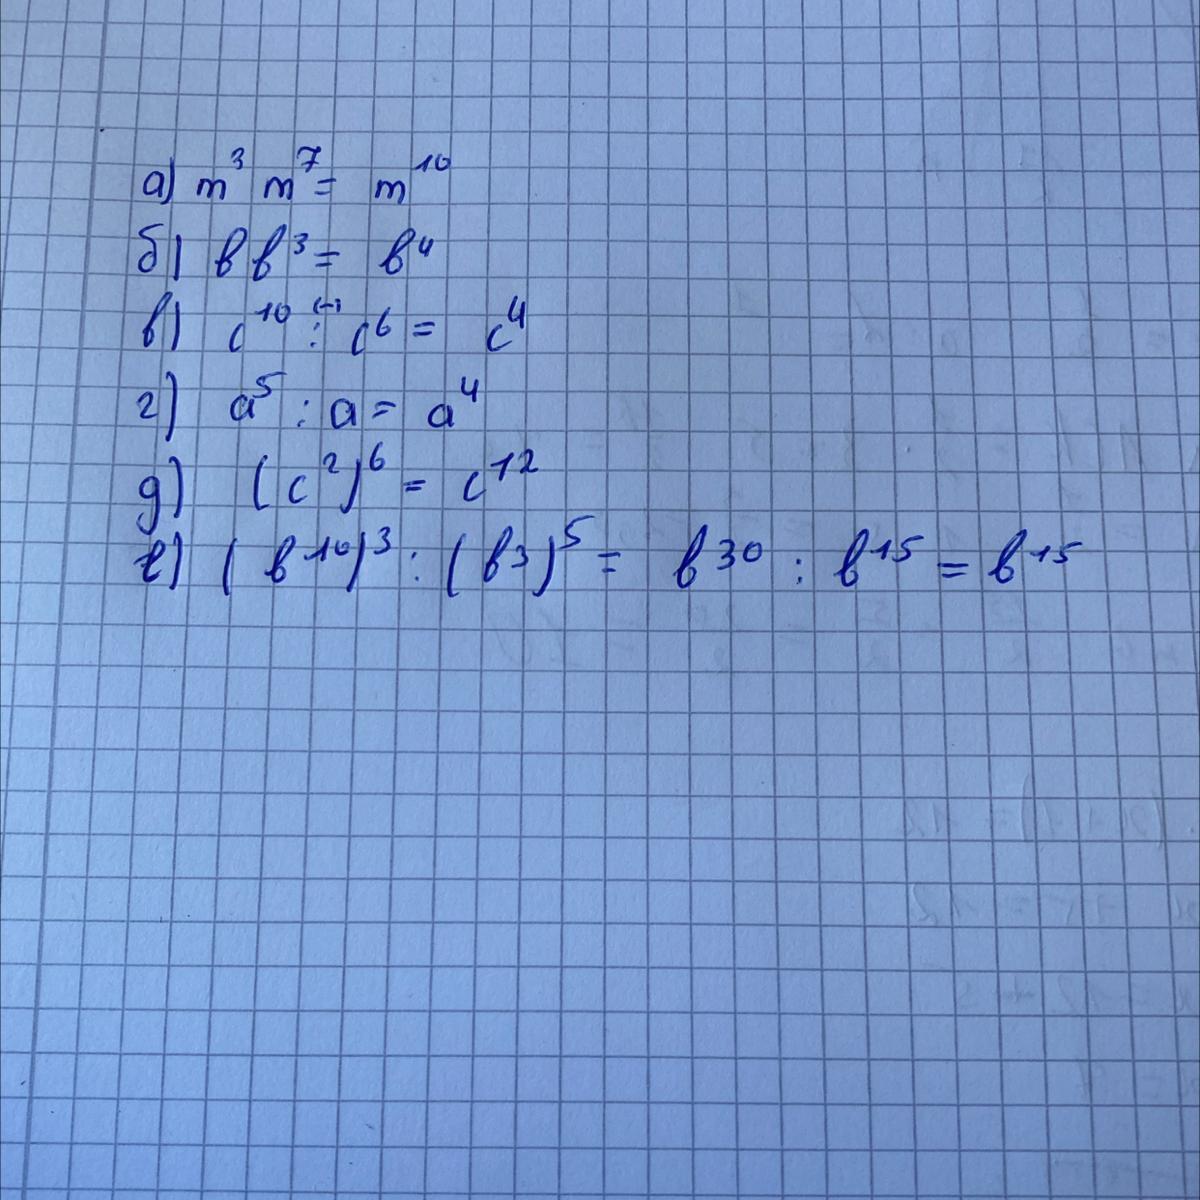 а) m³ m⁷ = m¹⁰
б) в в³ = в⁴
в) c¹⁰ :⁽⁻⁾ c⁶ = c⁴
г) a⁵ : a = a⁴
д) (c²)⁶ = c¹²
е) (в¹⁰)³ : (в³)⁵ = в³⁰ : в¹⁵ = в¹⁵